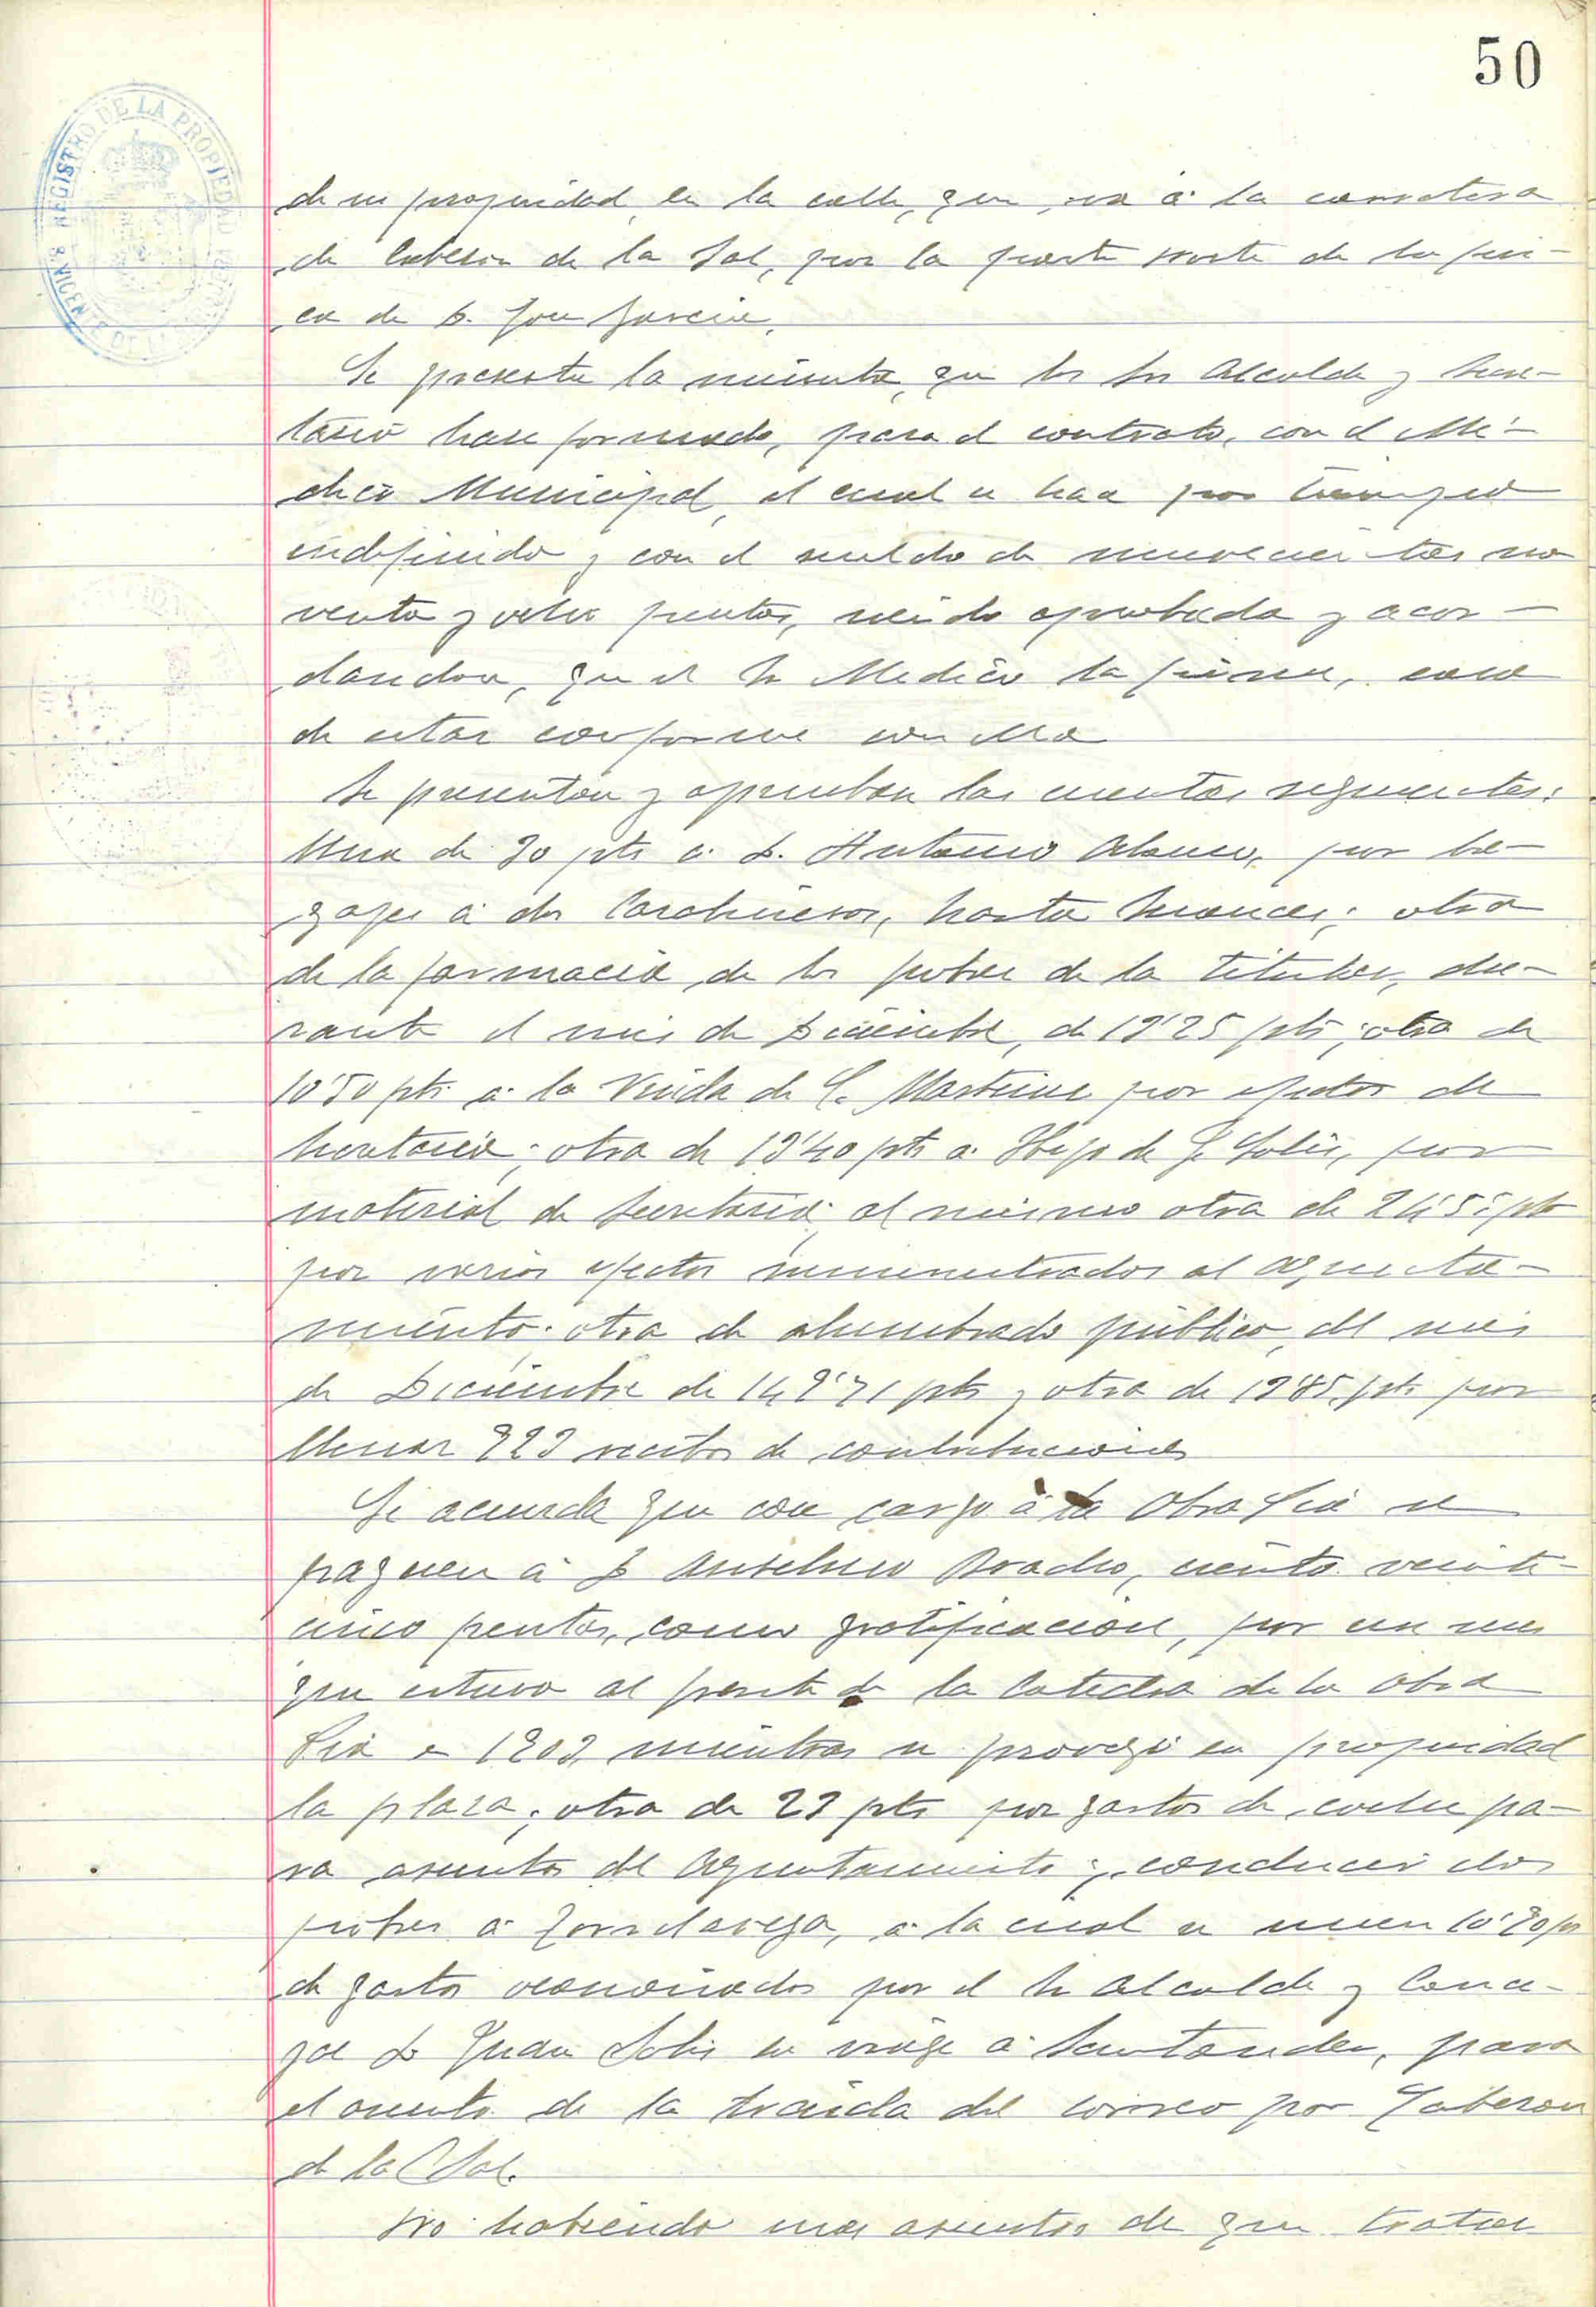 50
REGISTRO DE LA PROPIEDAD
de su propiedad, en la calle, que va á la carretera
de Cabezon de la Sal, por la parte norte de la fin-
ca de D. José Garcia.
Se presenta la minuta, que los Srs Alcalde y Secre-
tario han formado, para el contrato, con el Mé-
dico Municipal, el cual se hace por tiempo
indefinido y con el sueldo de novecientas no
venta y ocho pesetas, siendo aprobada y acor-
dandose, que el Sr Medico la firme, caso
de estar conforme con ella
Se presentan y aprueban las cuentas siguientes:
Una de 30 pts a D. Antonio Alonso, por ba-
gages á dos Carabineros, hasta ; otra
de la farmacia, de los pobres de la titular, du-
rante el mes de Diciembre, de 19'25 pts; otra de
10'50 pts á la Viuda de C. Martinez por efectos de
; otra de 19'40 pts a Hijo de J. Solis, por
material de Secretaria; al mismo otra de 24'55 pts
por varios efectos suministrados al Ayunta-
miento; otra de alumbrado público, del mes
de Diciembre de pts y otra de 19'85 pts por
llenar recibos de contribuciones
Se acuerda que con cargo á la Obra Pia se
paguen á D Anselmo Bracho, ciento veinti-
cinco pesetas, como gratificacion, por un mes
que estuvo al frente de la Catedra de la Obra
Pia mientras se proveyó en propiedad
la plaza; otra de 23 pts por gastos de coche pa-
ra asuntos del Ayuntamiento y conducir dos
pobres á Torrelavega, á la cual se unen pts
de gastos ocasionados por el Sr Alcalde y Conce-
jal D Juan Solis su viage á Santander, para
el asunto de la traida del correo por Cabezon
de la Sal.
No habiendo mas asuntos de que tratar